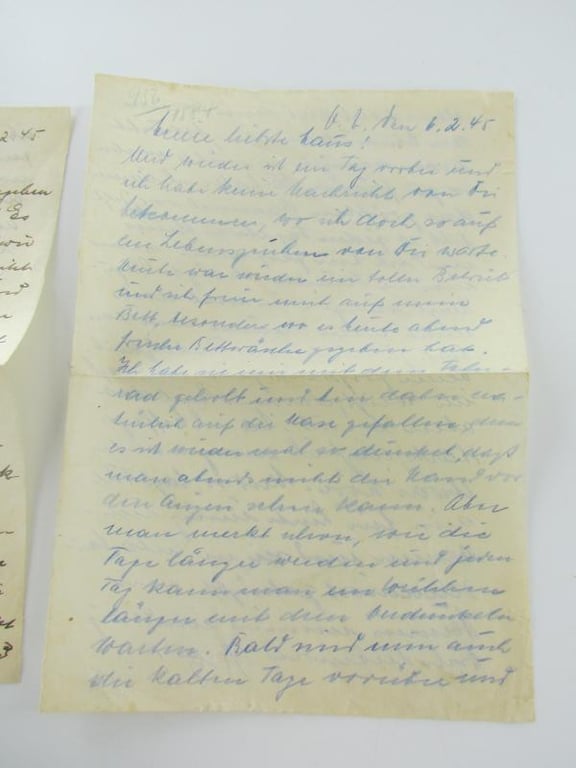 O. U., den 6.2.45
Meine liebste Maus!
Und wieder ist ein Tag vorbei und
ich habe keine Nachricht von Dir
bekommen, wo ich doch so auf
ein Lebenszeichen von Dir warte.
Heute war wieder ein toller Betrieb
und ich freue mich auf mein
Bett, besonders wo es heute abend
frische Bettwäsche gegeben hat.
Ich habe sie mir mit dem Fahr-
rad geholt und bin dabei na-
türlich auf die Nase gefallen, denn
es ist wieder mal so dunkel, dass
man abends nicht die Hand vor
den Augen sehen kann. Aber
man merkt schon, wie die
Tage länger werden und jeden
Tag kann man ein bißchen
länger mit dem Verdunkeln
warten. Bald wird nun auch
die kalten Tage vorüber und
2.45
geben
Es
wie